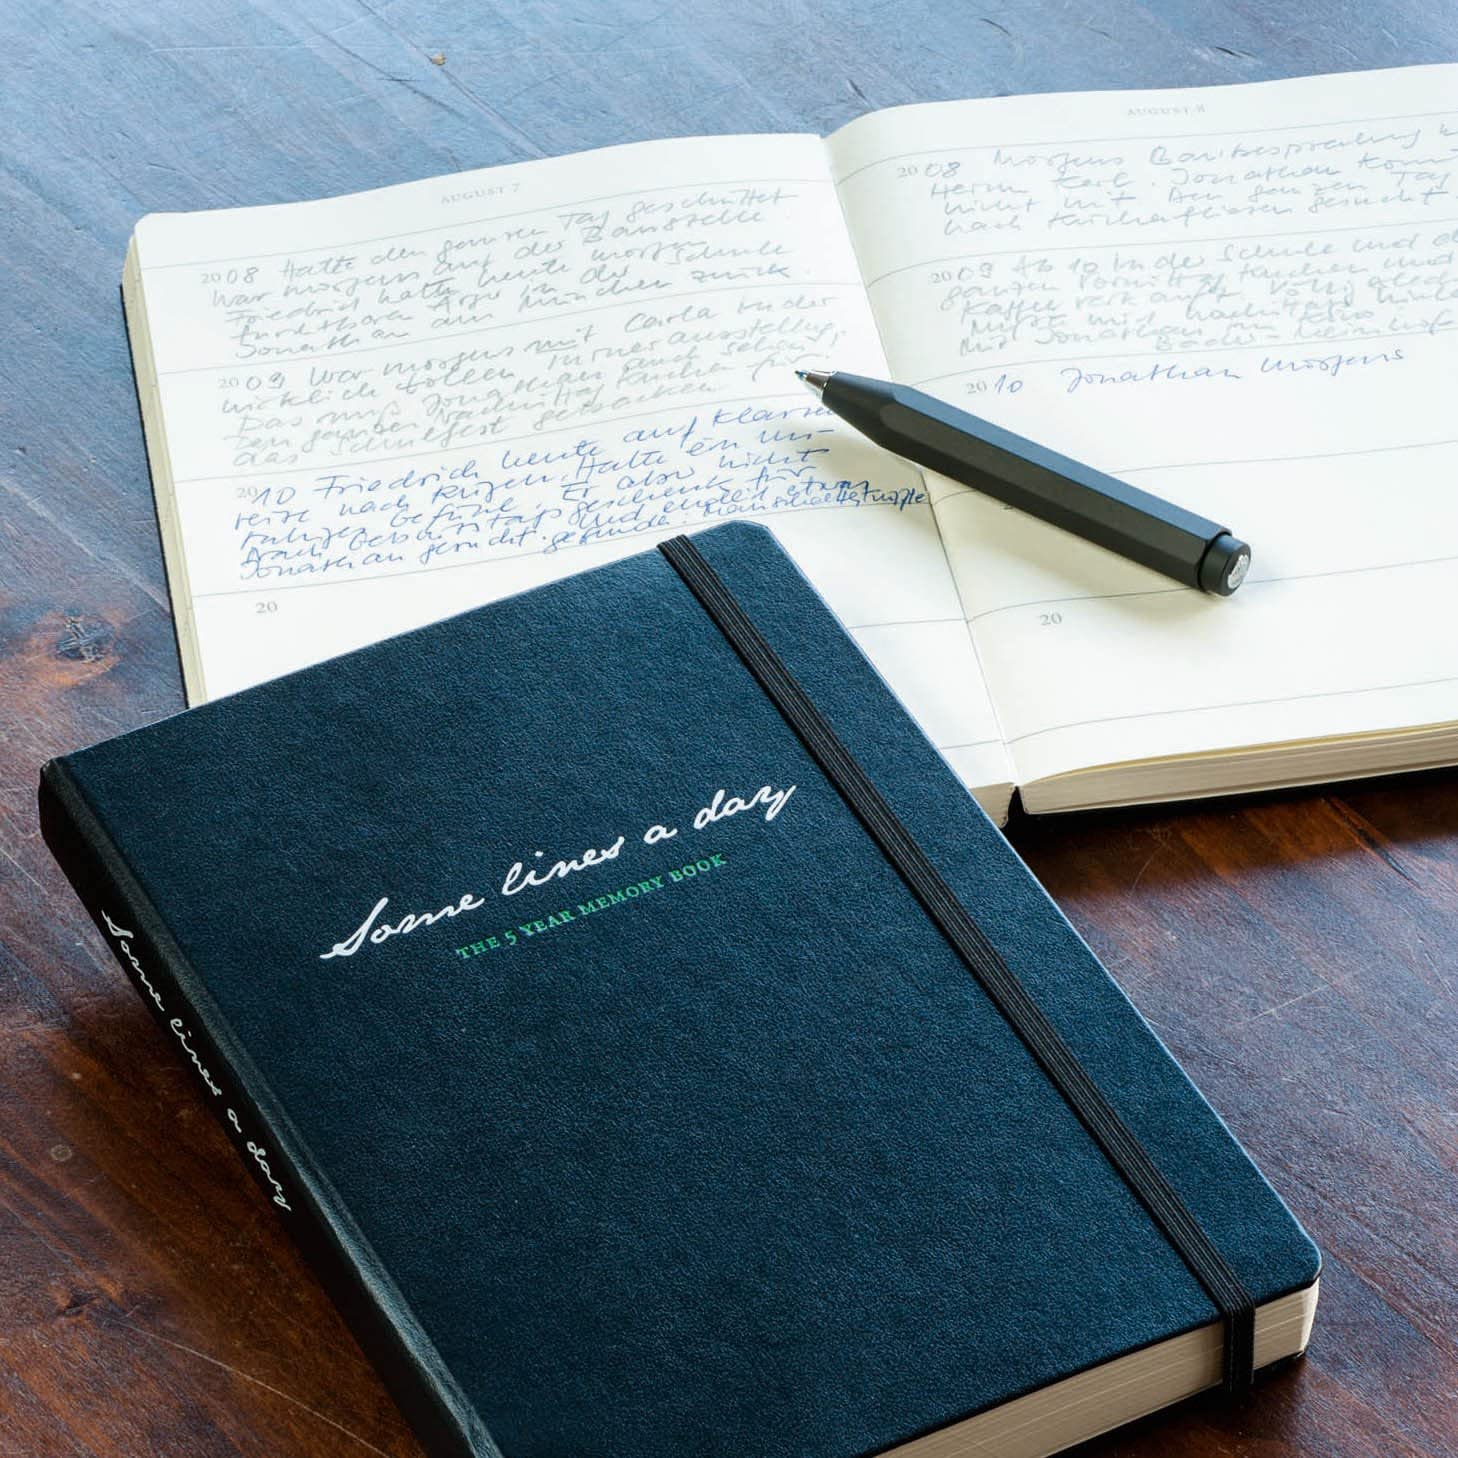 AUGUST 7
2008 Hatte den ganzen Tag geschüttet
War morgens auf der Baustelle.
Friedrich hatte heute
furchtbaren Ärger in der Schule
Jonathan aus München zurück.
2009 War morgens mit Carla in der
wirklich tollen Turnerausstellung.
Das muß Jonathan auch sehen!
Den ganzen Nachmittag Kuchen für
das Schulfest gebacken.
2010 Friedrich heute auf Klassen-
reise nach Rügen. Hatte ein un-
ruhiges Gefühl. Er aber nicht
Nach Geburtstagsgeschenk für
Jonathan gesucht und endlich etwas
gefunden. Manschettenknöpfe
20
AUGUST 8
2008 Morgens Baubesprechung
Herrn Kerl. Jonathan konnte
nicht mit. Den ganzen Tag
nach Küchenfliesen gesucht
2009 Ab 10 in der Schule und
ganzen Vormittag Kuchen und
Kaffee verkauft.
Mit Jonathan im
2010 Jonathan morgens
20
Some lines a day
THE 5 YEAR MEMORY BOOK
Some lines a day